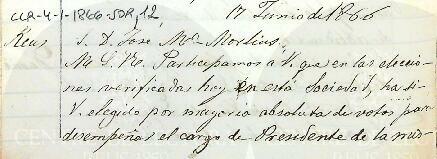 CCR-4-1-1866-SDR, 12, 17 Junio de 1866
Reus S. D. Jose Ma. Morlius,
M. S. Ntro. Participamos a V. que en las eleccio-
nes verificadas hoy en esta Sociedad, ha si-
V. elegido por mayoria absoluta de votos para
desempeñar el cargo de Presidente de la mis-